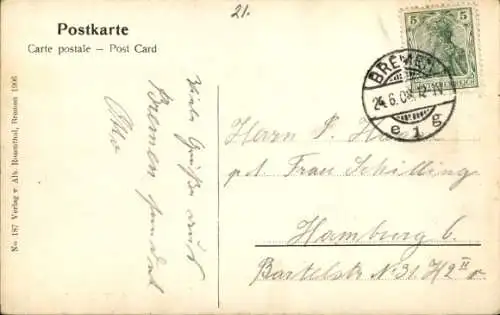 21.
Postkarte
Carte postale – Post Card
5 5
DEUTSCHES REICH
BREMEN
24.6.08. 12-1 N
e 1 g
No 187 Verlag v. Alb. Rosenthal, Bremen 1906
Viele Grüße aus
Bremen sendet
Otto
Herrn P.
p. Frau Schilling
Hamburg 6.
Bartelstr. No 31. H 2 II